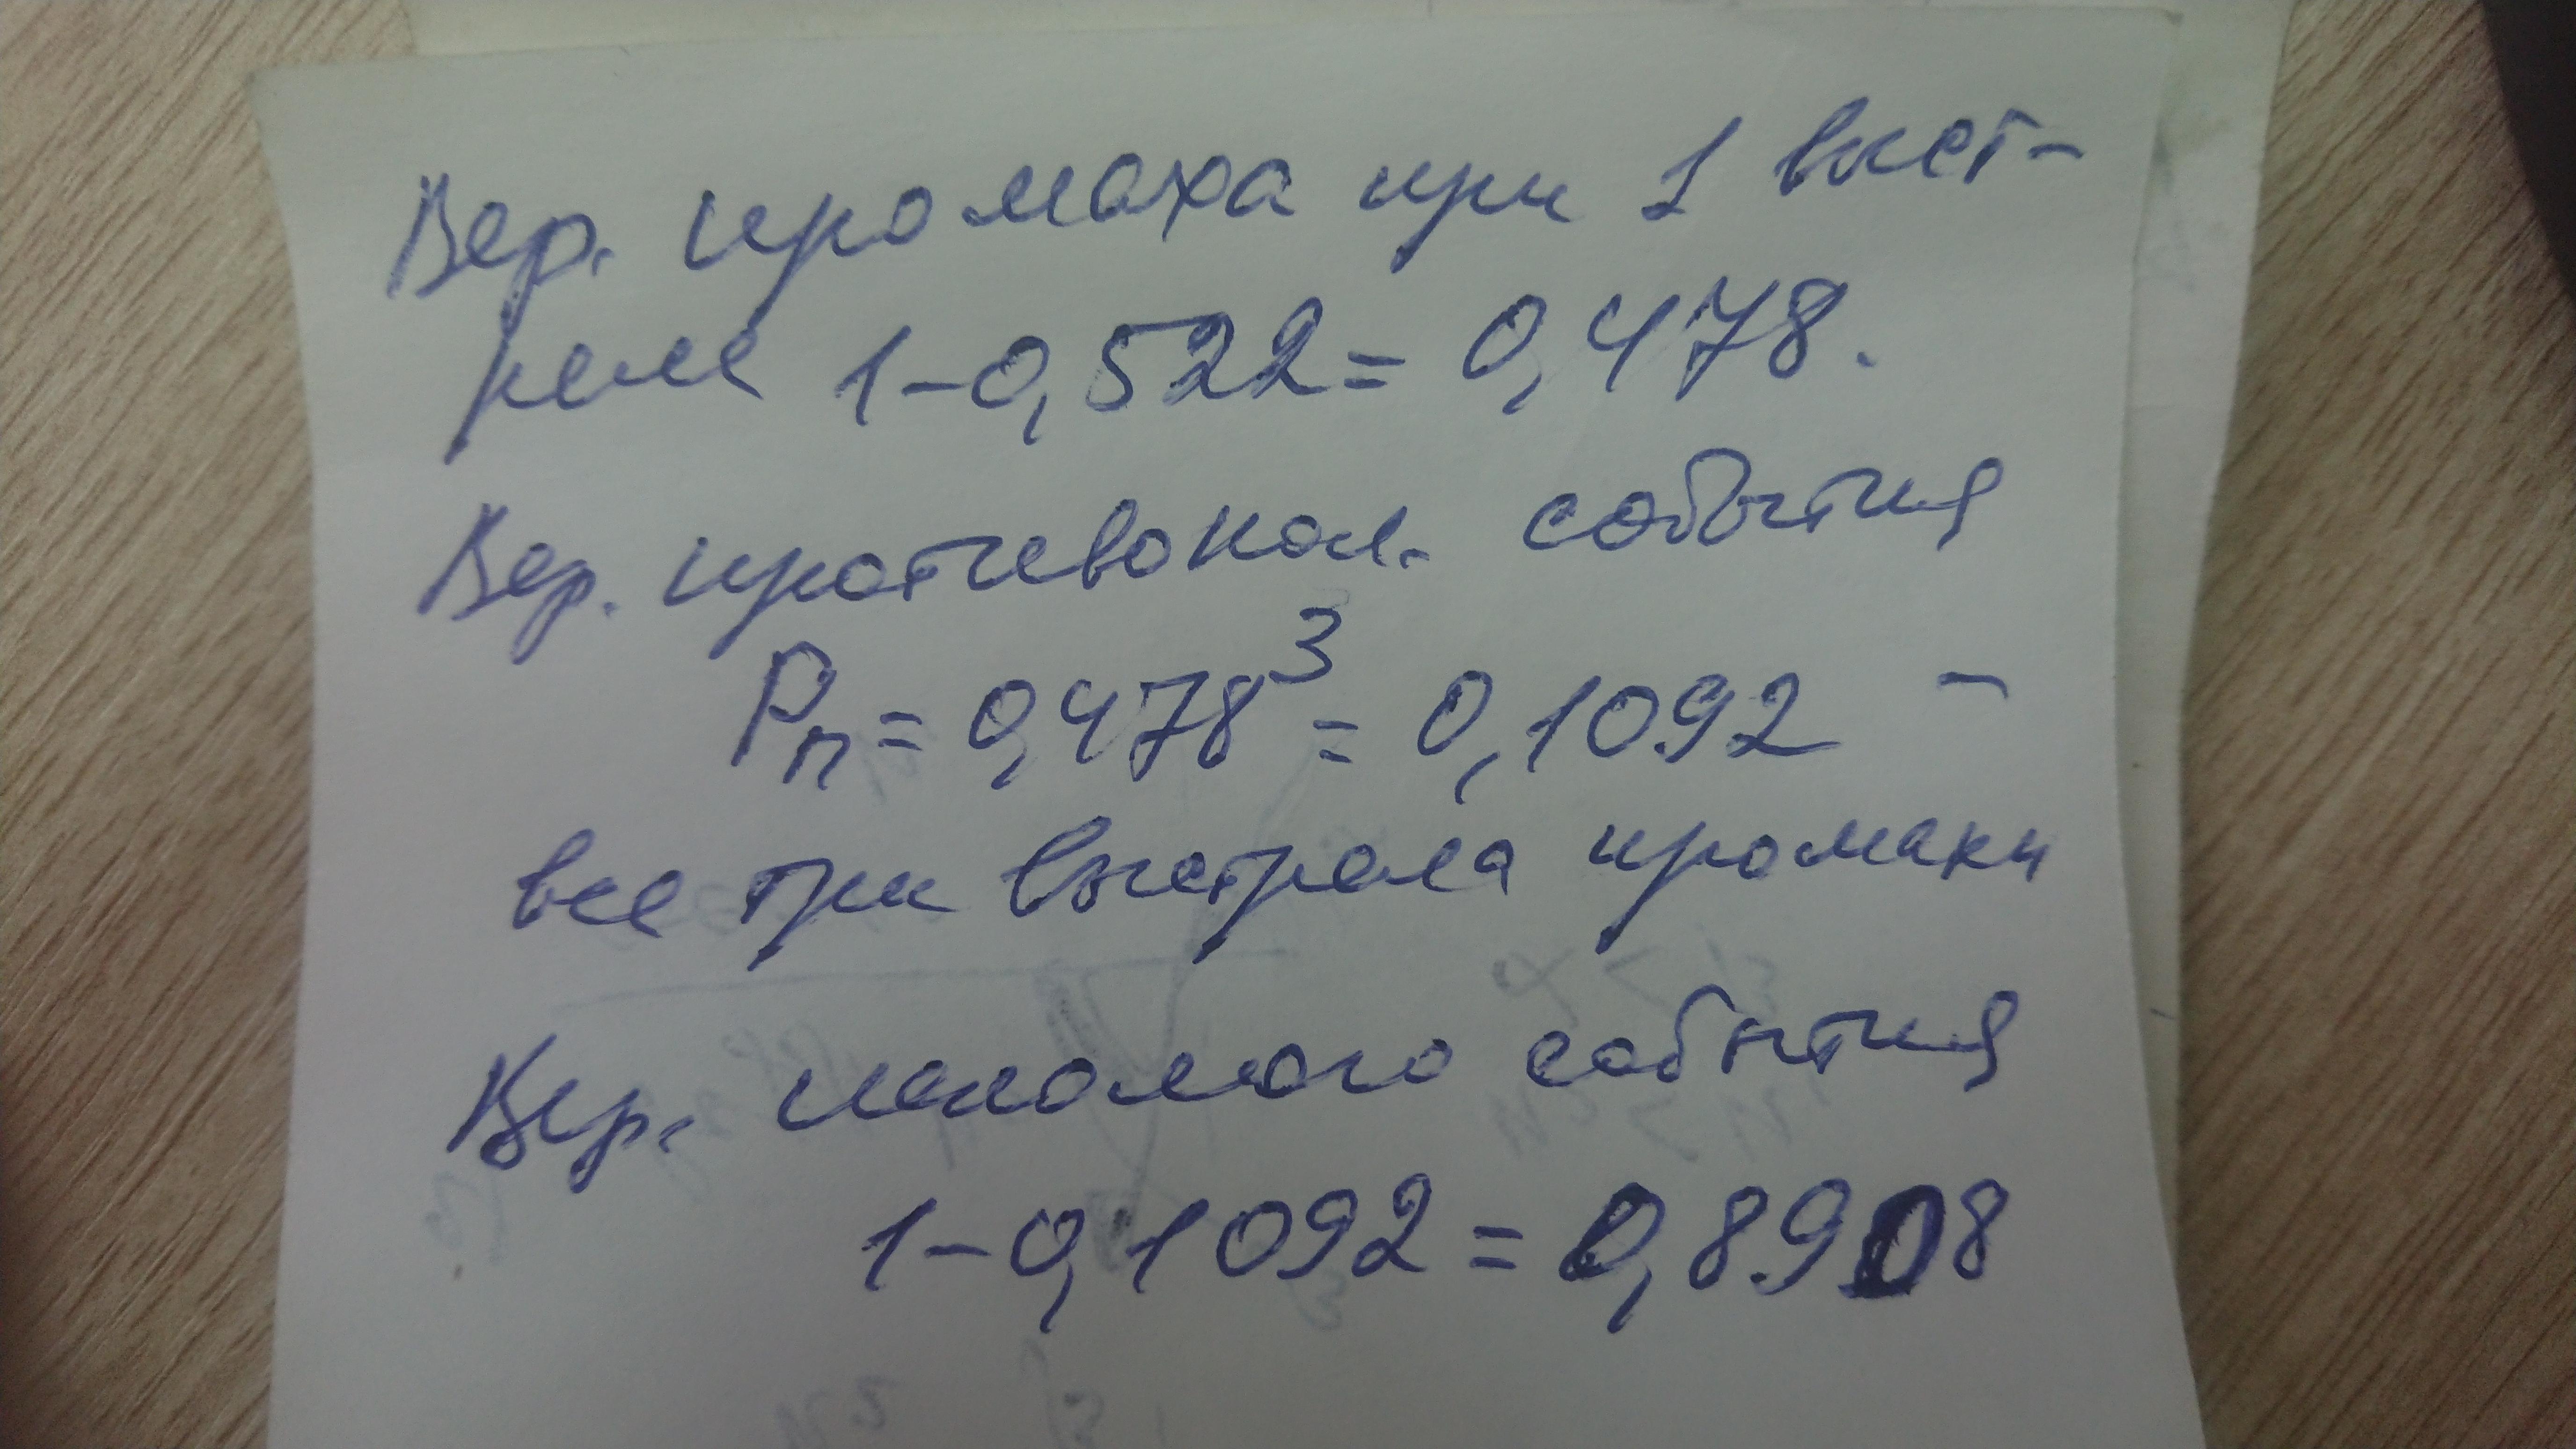 Вер. промаха при 1 выст-
реле 1-0,522=0,478.
Вер. противопол. события
Pп=0,478³=0,1092 -
все три выстрела промахи
Вер. искомого события
1-0,1092=0,8908